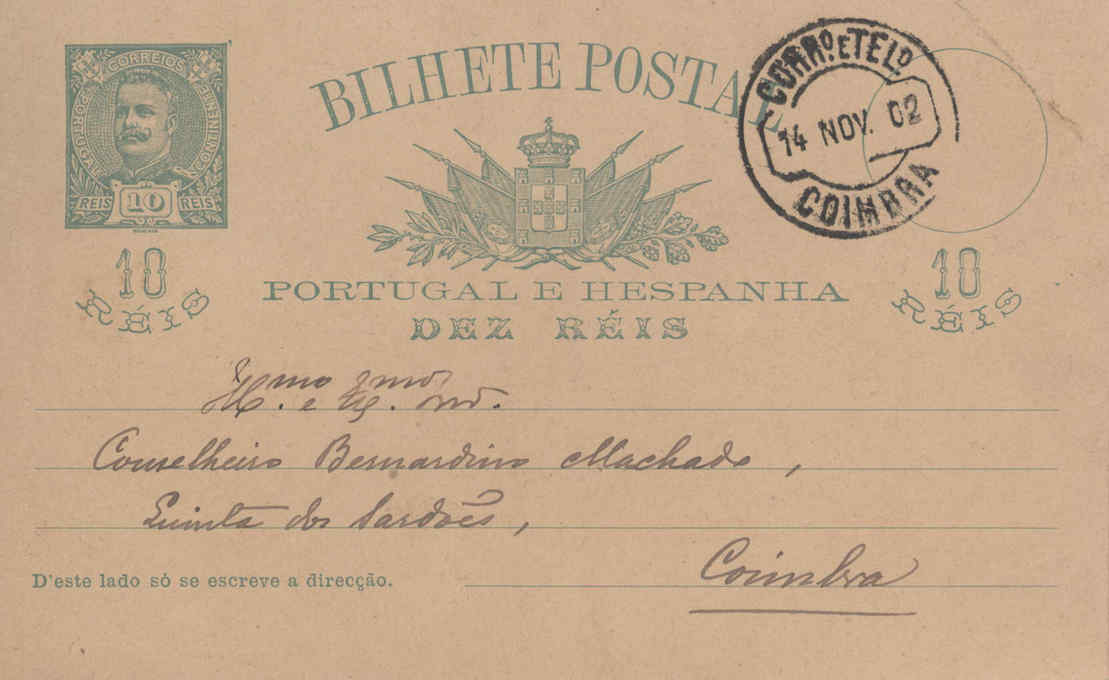 CORREIOS
PORTUGAL
CONTINENTE
REIS 10 REIS
BILHETE POSTAL
CORRº E TELº
14 NOV. 02
COIMBRA
10 RÉIS
10 RÉIS
PORTUGAL E HESPANHA
DEZ RÉIS
Il.mo e Ex.mo Snr.
Conselheiro Bernardino Machado,
Quinta dos Sardões,
Coimbra
D'este lado só se escreve a direcção.